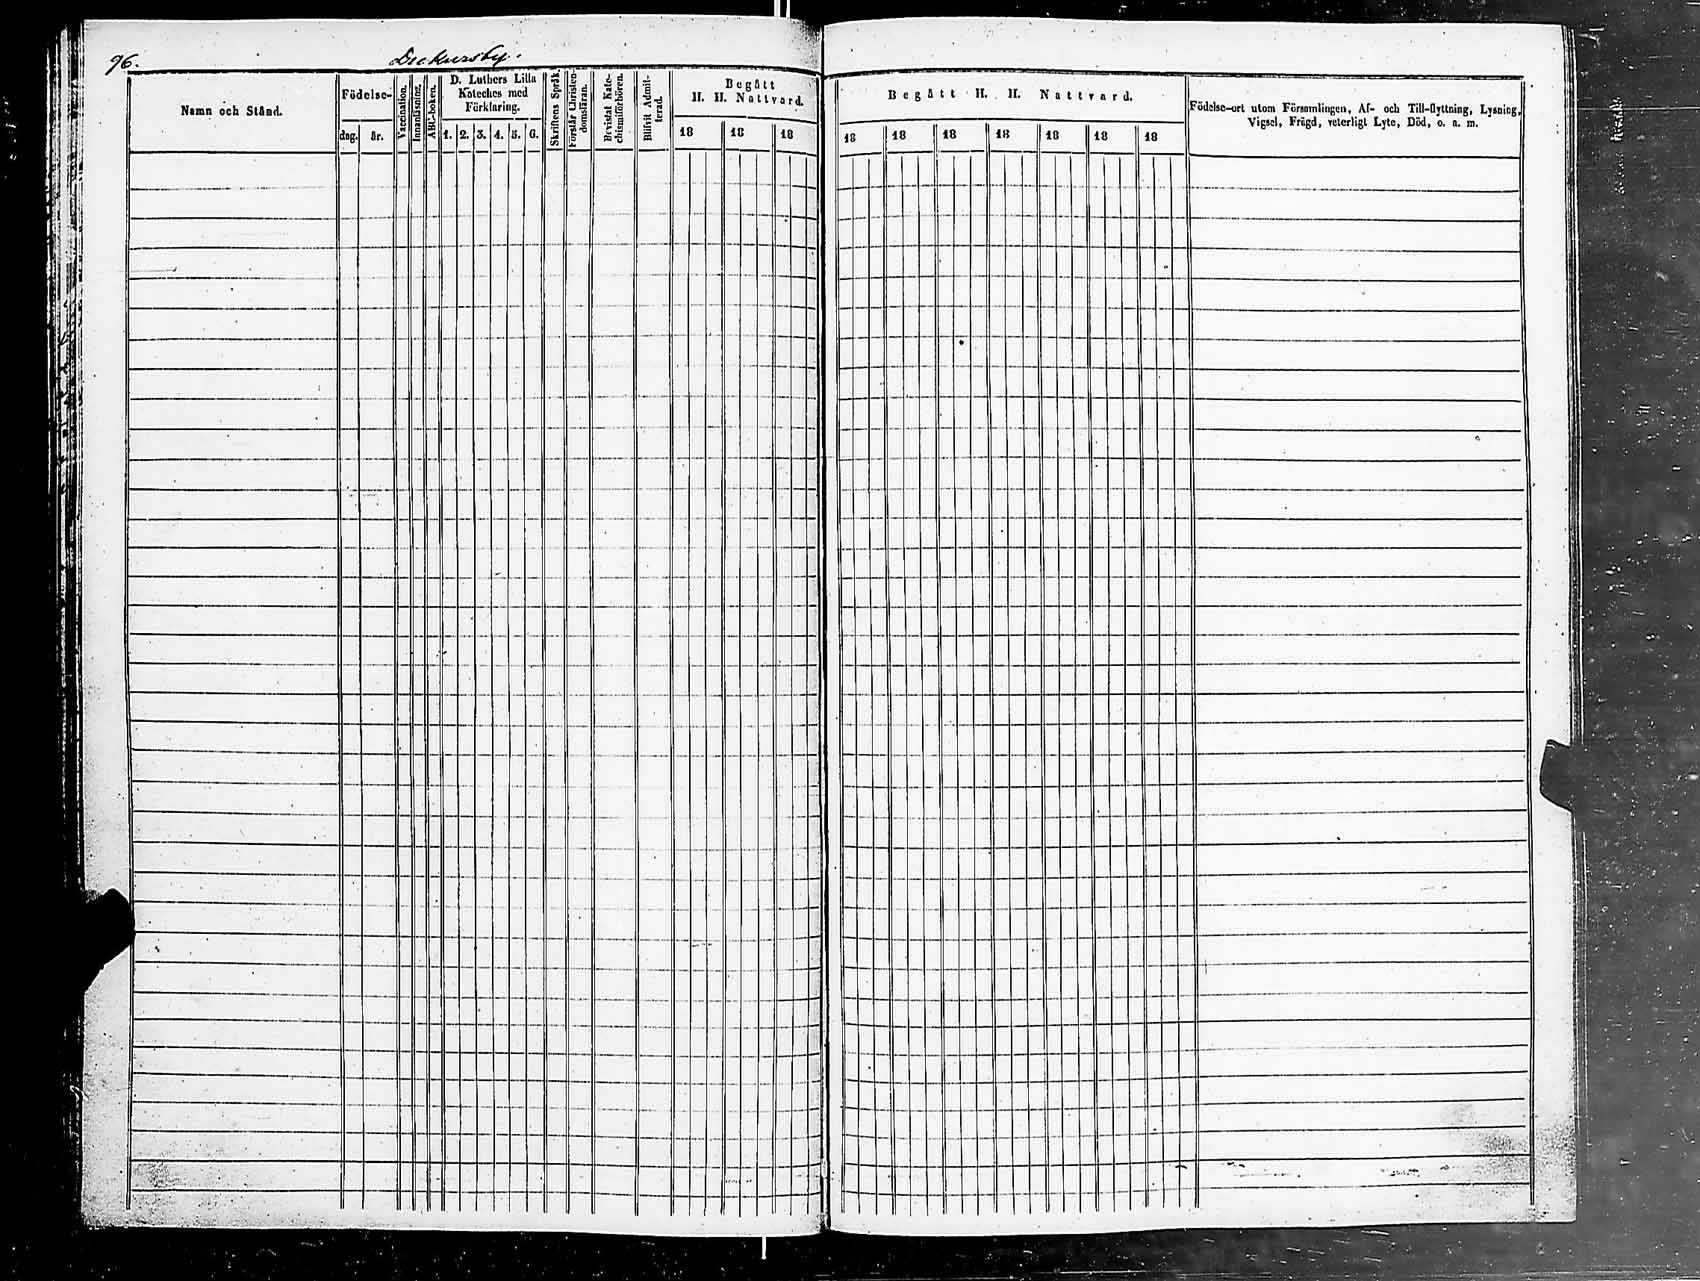 96. Dickursby.
Namn och Stånd.
Födelse-
dag. år.
Vaccination.
Innanläsning.
ABC-boken.
D. Luthers Lilla
Kateches med
Förklaring.
1. 2. 3. 4. 5. 6.
Skriftens Språk.
Förstår Christen-
domsläran.
Bevistat Kate-
chismiförhören.
Blifvit Admit-
terad.
Begått
H. H. Nattvard.
18 18 18
Begått H. H. Nattvard.
18 18 18 18 18 18 18
Födelse-ort utom Församlingen, Af- och Till-flyttning, Lysning,
Vigsel, Frägd, veterligt Lyte, Död, o. a. m.